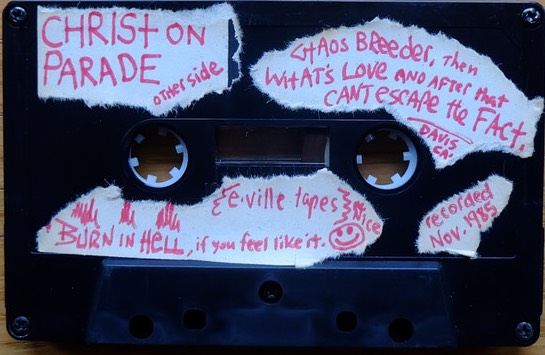 CHRIST ON
PARADE
OTHER SIDE
CHAOS BREEDER, THEN
WHAT'S LOVE AND AFTER THAT
CANT ESCAPE the FACT.
DAVIS
CA.
{e.ville tapes}
Nice
BURN IN HELL, if you feel like it.
recorded
Nov. 1985